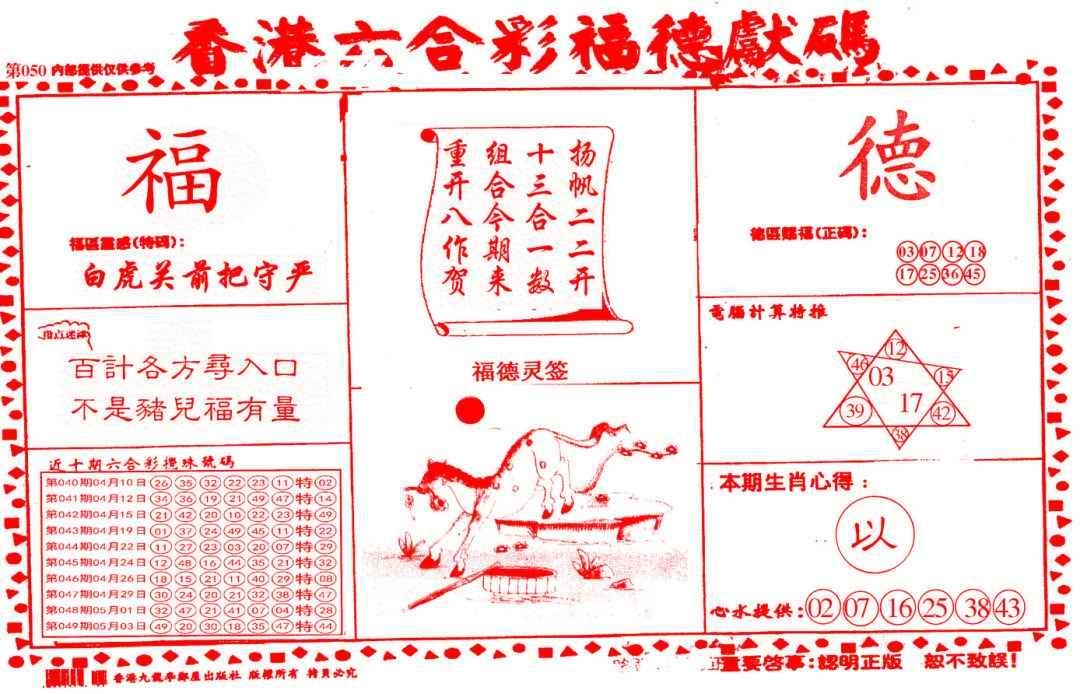 香港六合彩福德獻碼
第050 內部提供仅供参考
福
福區靈感(特碼):
白虎关前把守严
指点迷津
百計各方尋入口
不是豬兒福有量
近十期六合彩攪珠號碼
第040期04月10日 26 35 32 22 23 11 特 02
第041期04月12日 34 36 19 21 49 47 特 14
第042期04月15日 21 42 20 10 22 23 特 49
第043期04月19日 01 37 24 49 45 11 特 22
第044期04月22日 11 27 23 03 20 07 特 29
第045期04月24日 12 48 16 44 35 21 特 32
第046期04月26日 18 15 21 11 40 29 特 08
第047期04月29日 30 24 20 21 32 38 特 47
第048期05月01日 32 47 21 41 07 04 特 28
第049期05月03日 49 20 30 18 35 47 特 44
扬帆二二开
十三合一数
组合今期来
重开八作贺
福德灵签
德
德區賜福(正碼):
03 07 12 18
17 25 36 45
電腦計算特推
12
46 03 15
39 17 42
38
本期生肖心得:
以
心水提供: 02 07 16 25 38 43
香港九龍學鄰屋出版社 版權所有 特員必究
重要啓事:認明正版 恕不致誤!